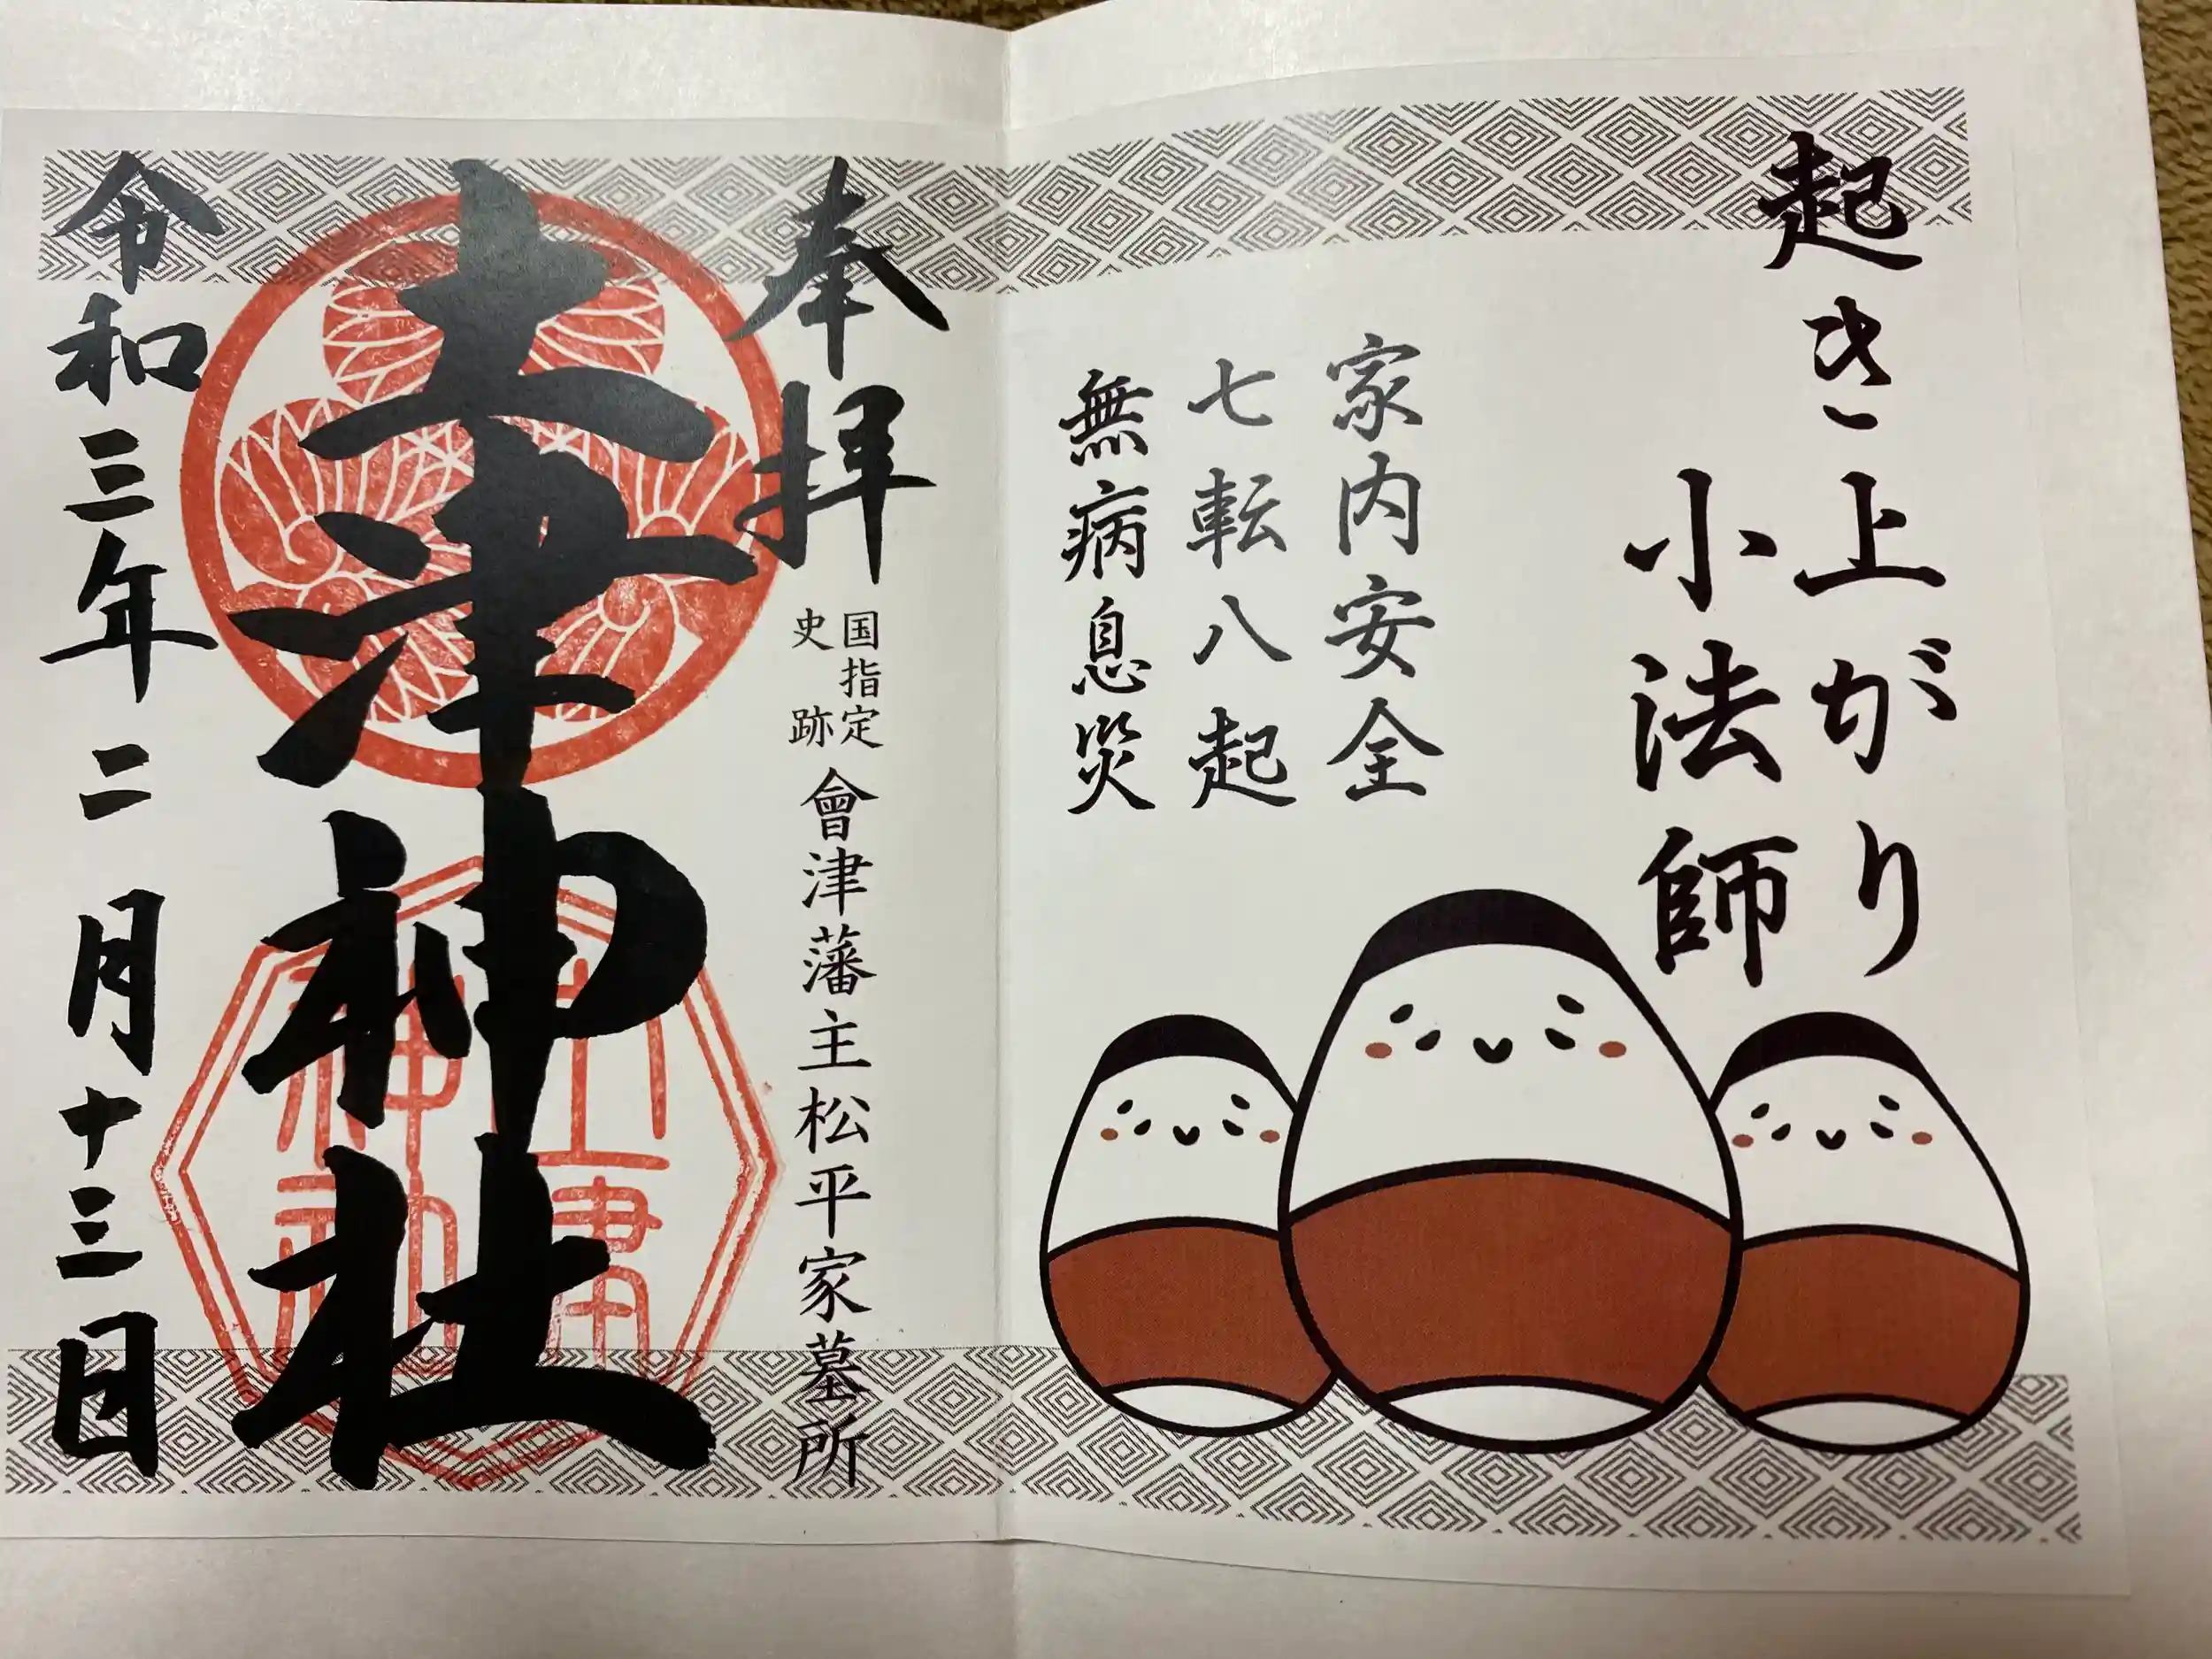 起き上がり
小法師
家内安全
七転八起
無病息災
奉拝
国指定
史跡
會津藩主松平家墓所
土津神社
土津
神社
令和三年二月十三日